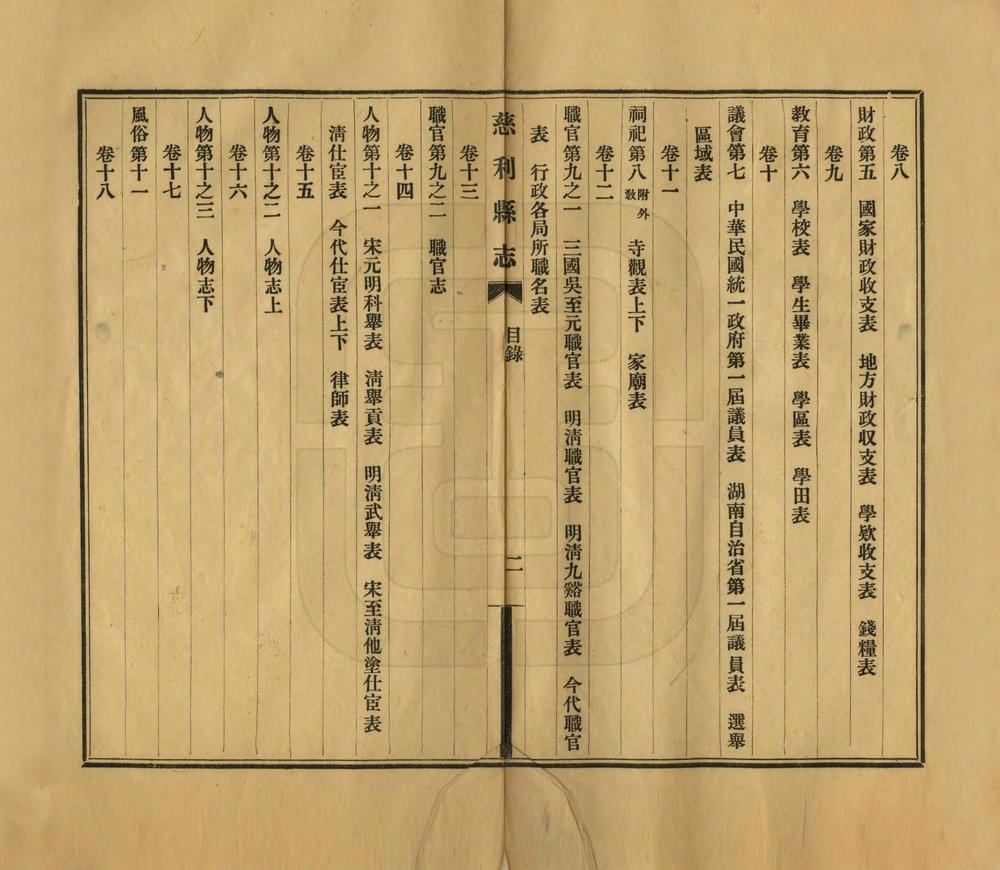 卷八
財政第五　國家財政收支表　地方財政収支表　學欵收支表　錢糧表
卷九
教育第六　學校表　學生畢業表　學區表　學田表
卷十
議會第七　中華民國統一政府第一屆議員表　湖南自治省第一屆議員表　選舉
區域表
卷十一
祠祀第八附外敎　寺觀表上下　家廟表
卷十二
職官第九之一　三國吳至元職官表　明淸職官表　明淸九谿職官表　今代職官
表　行政各局所職名表
慈利縣志　目錄　二
卷十三
職官第九之二　職官志
卷十四
人物第十之一　宋元明科舉表　淸舉貢表　明淸武舉表　宋至淸他塗仕宦表
淸仕宦表　今代仕宦表上下　律師表
卷十五
人物第十之二　人物志上
卷十六
人物第十之三　人物志下
卷十七
風俗第十一
卷十八